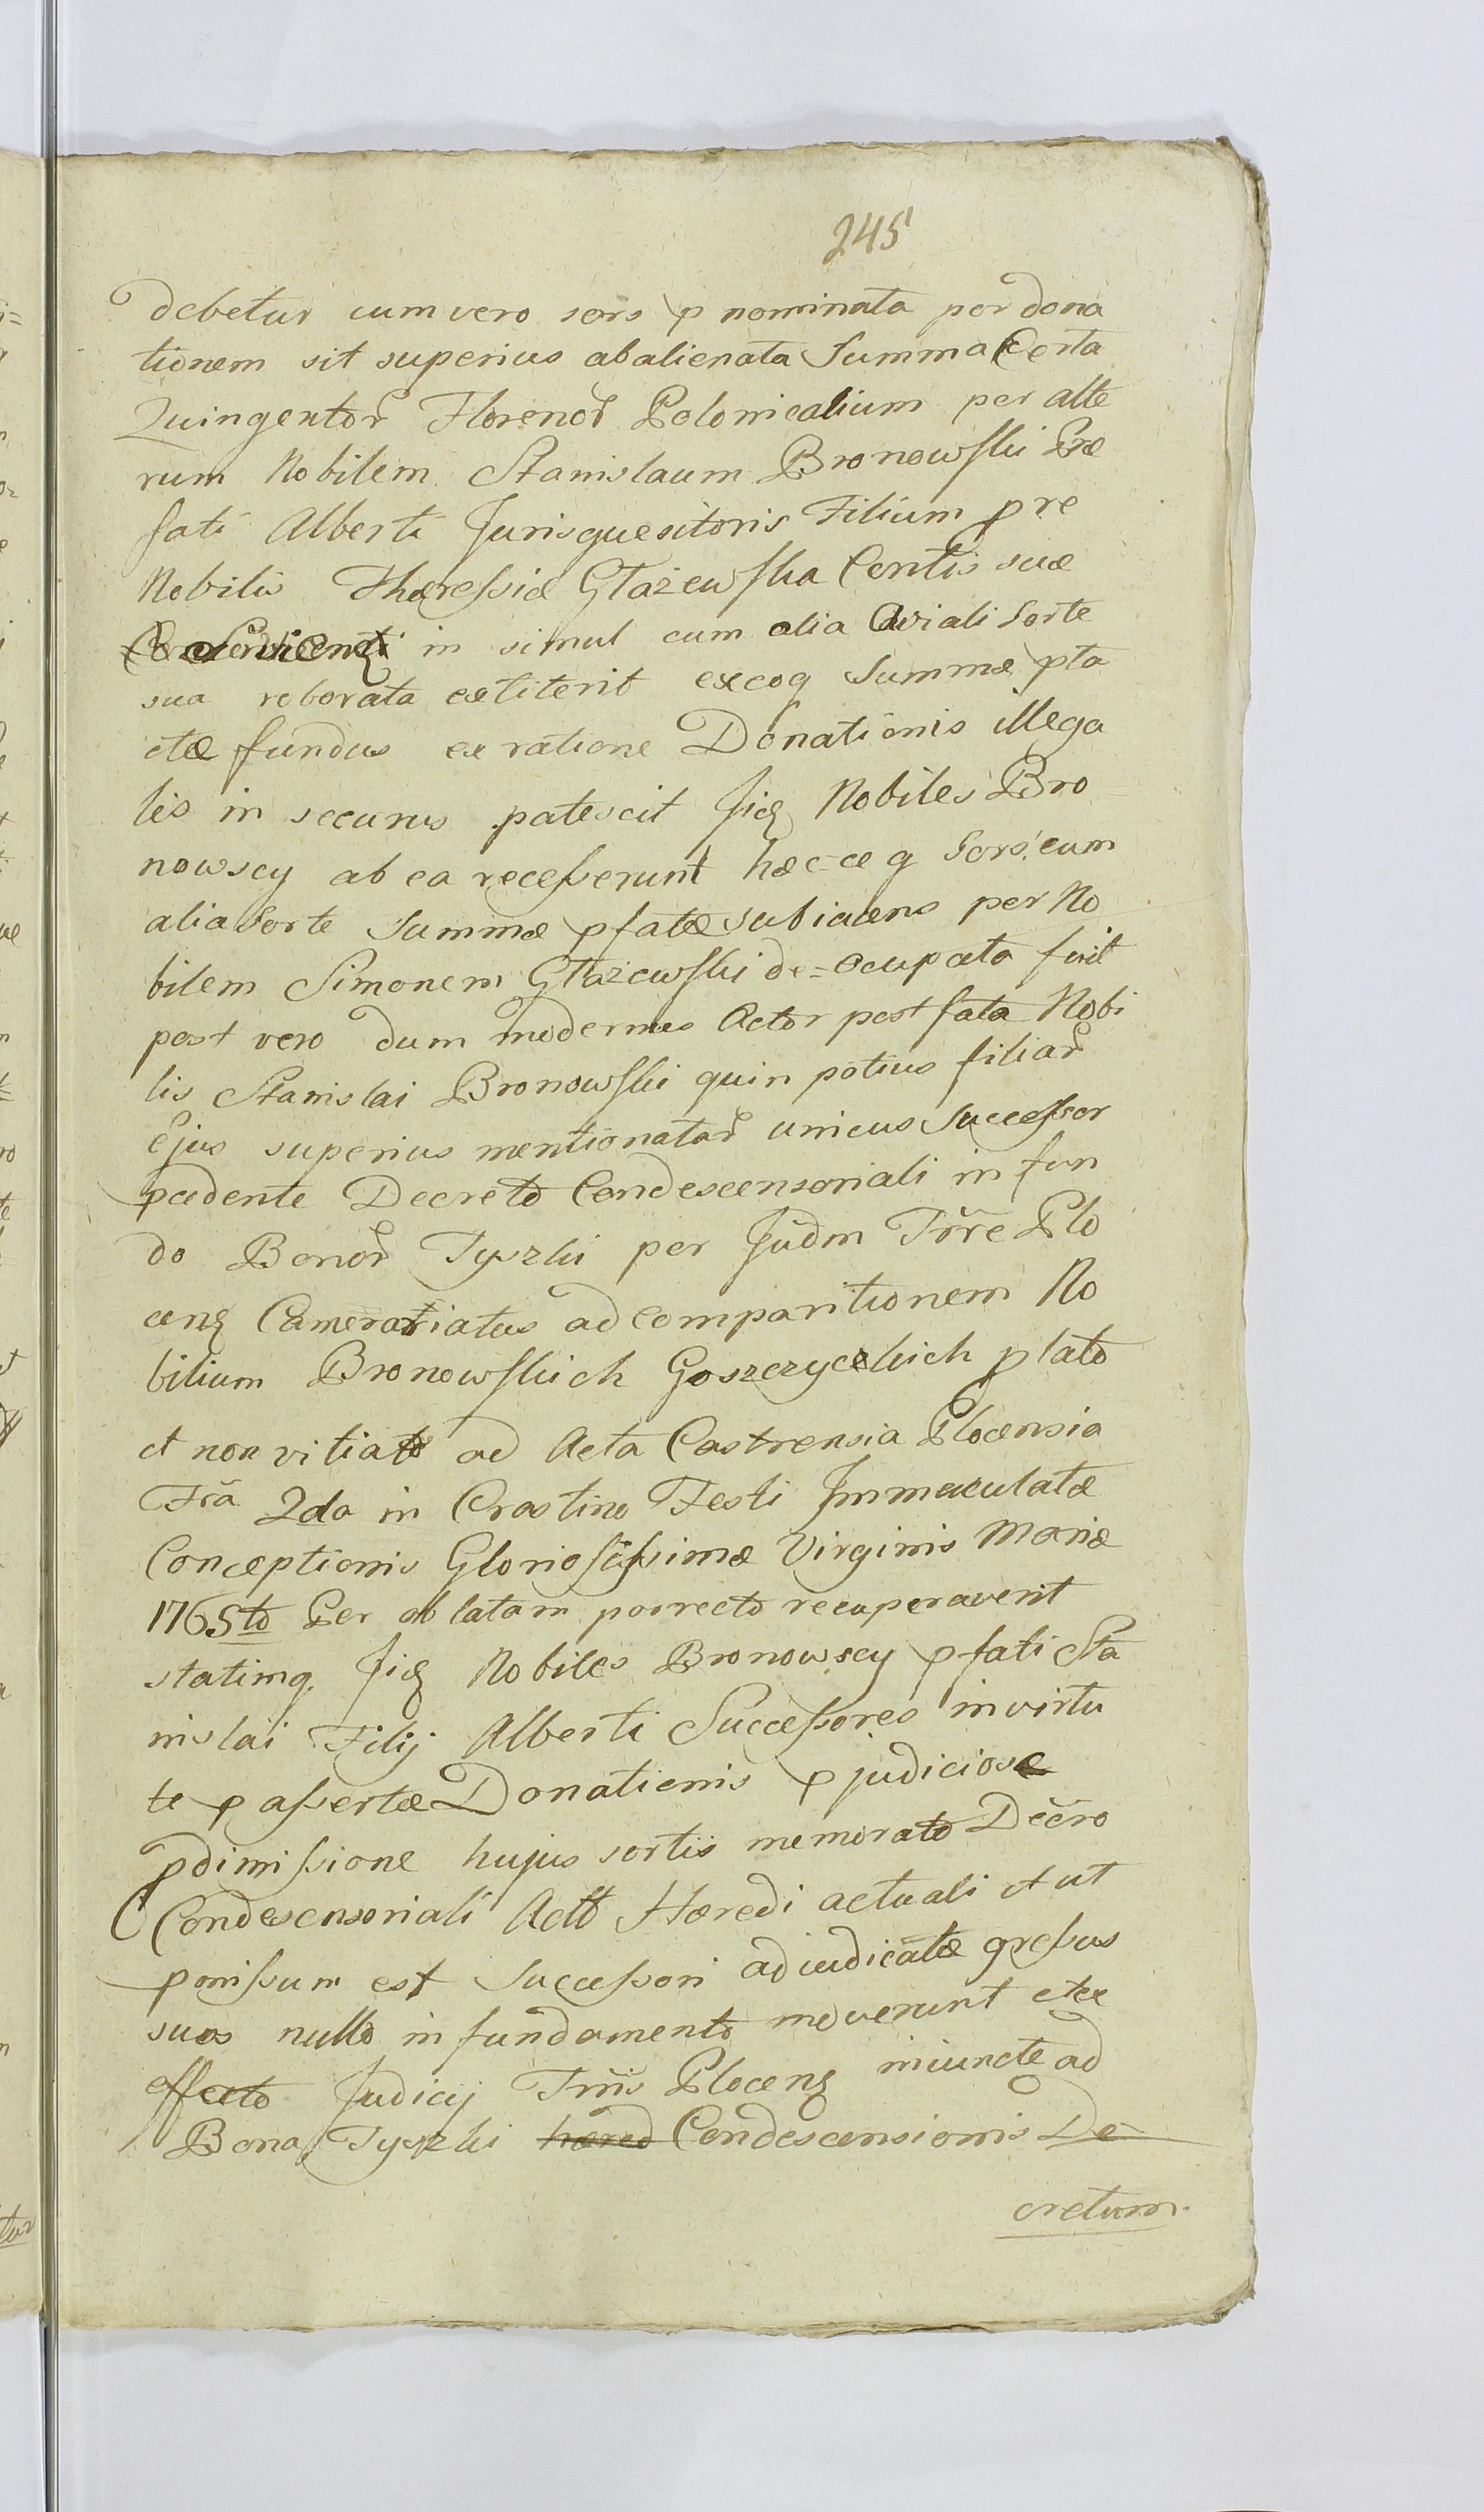 245
debetur cum vero sors p nominata per dona
tionem sit superius abalienata Summa Certa
Quingentor Florenor Polonicalium per alte
rum Nobilem Stanislaum Bronowski Præ
fati Alberti Jurisquesitoris Filium pre
Nobilis Theressiæ Głażewska Contis suæ
in simul cum alia Aviali Sorte
sua roborata extiterit ex eoq Summæ pta
ctæ fundus ex ratione Donationis illega
lis in securus patescit Jidq Nobiles Bro
nowscy ab ea recesserunt hæc-ce q Sors cum
alia Sorte Summæ pfatæ subiacens per No
bilem Simonem Głażewski de=Ocupata fuit
post vero dum modernus Actor post fata Nobi
lis Stanislai Bronowski quin potius filiar
Ejus superius mentionatar unicus Successor
pcedente Decreto Condescensoriali in fun
do Bonor Tyszki per Judm Trre Plo
cens Camerariatus ad comparitionem No
bilium Bronowskich Goszczyckich p lato
et non vitiato ad Acta Castrensia Plocensia
Fra 2da in Crastino Festi Immaculatæ
Conceptionis Gloriosissimæ Virginis Mariæ
1765to Per oblatam porrecto recuperaverit
statimq. Jidq Nobiles Bronowscy pfati Sta
nislai Filij Alberti Successores in virtu
te passertæ Donationis pjudiciose
pdimissione hujus sortis memorato Decro
Condescensoriali Actori Hæredi actuali et ut
pmissum est Successori adiudicatæ gressus
suos nullo in fundamento moverunt et ex
effecto Judicij Trris Plocens iniunctæ ad
Bona Tyszki hæred Condescensionis De
cretum.